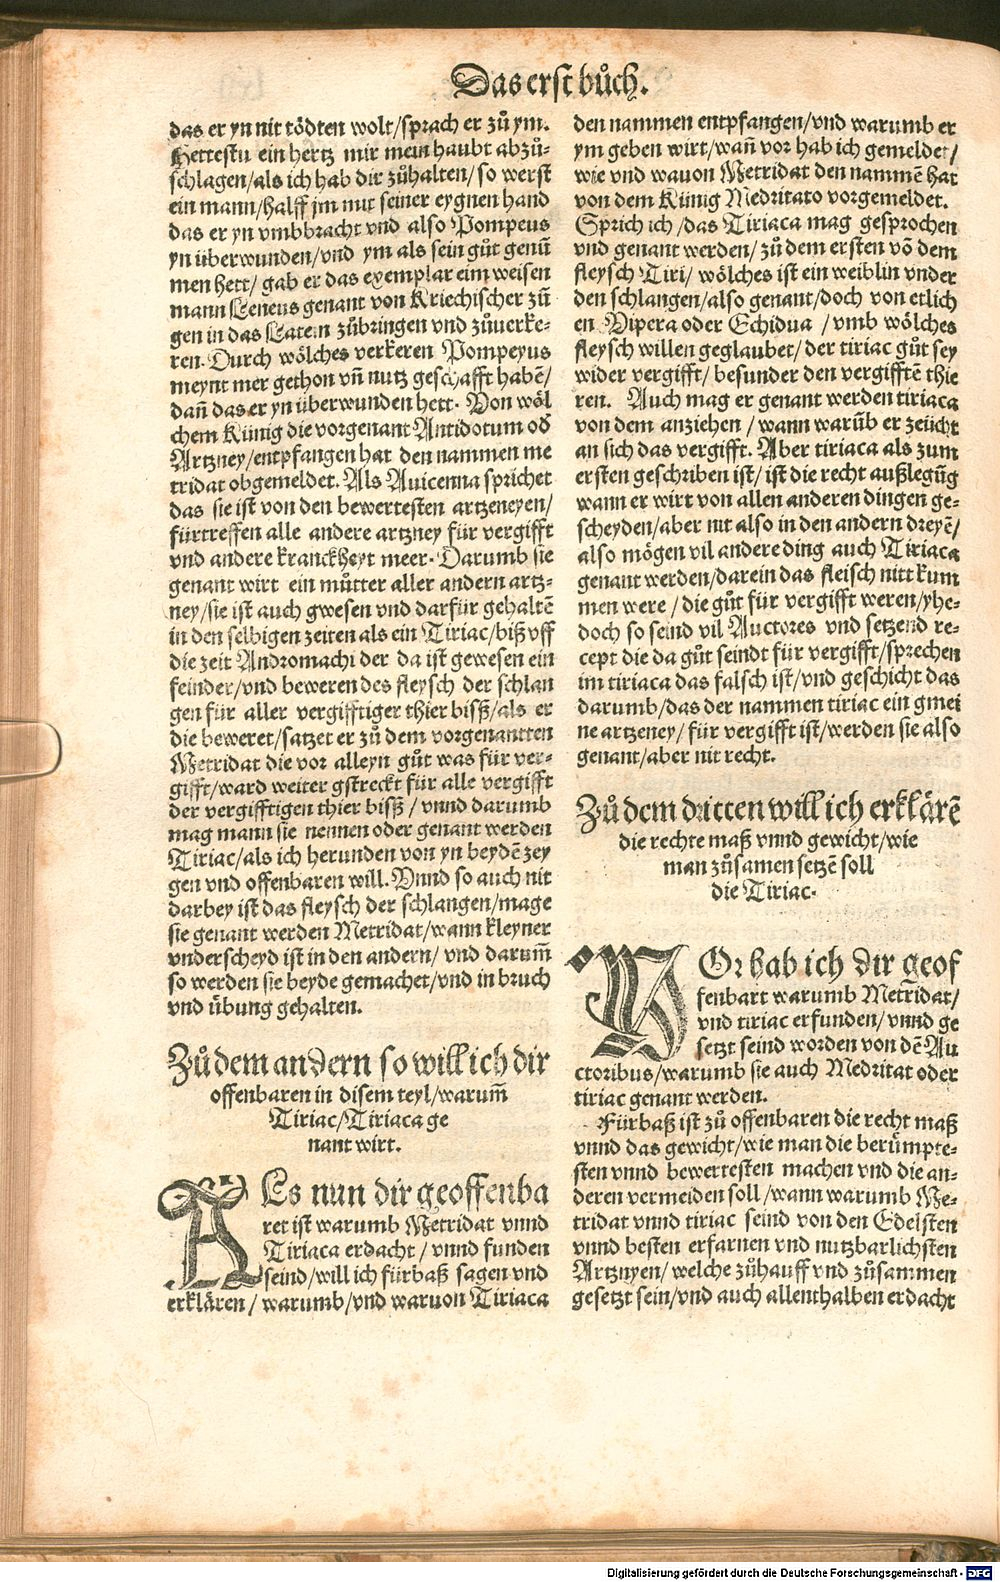 Das erst bůch.
das er yn nit tödten wolt/sprach er zů ym.
Hettestu ein hertz mir mein haubt abzů-
schlagen/als ich hab dir zůhalten/so werst
ein mann/halff jm mit seiner eygnen hand
das er yn vmbbracht vnd also Pompeus
yn überwunden/vnd ym als sein gůt genū
men hett/ gab er das exemplar eim weisen
mann Leneus genant von Kriechischer zů
gen in das Latein zůbringen vnd zůuerke-
ren. Durch wölches verkeren Pompeyus
meynt mer gethon vñ nutz geschafft habē/
dañ das er yn überwunden hett. Von wöl
chem Künig die vorgenant Antidotum od
Artzney/entpfangen hat den nammen me
tridat obgemeldet. Als Auicenna sprichet
das sie ist von den bewertesten artzeneyen/
fürtreffen alle andere artzney für vergifft
vnd andere kranckheyt meer. Darumb sie
genant wirt ein můtter aller andern artz-
ney/sie ist auch gwesen vnd darfür gehaltē
in den selbigen zeiten als ein Tiriac/biß vff
die zeit Andromachi der da ist gewesen ein
feinder/vnd beweren des fleysch der schlan
gen für aller vergifftiger thier bisß/als er
die beweret/satzet er zů dem vorgenantten
Metridat die vor alleyn gůt was für ver-
gifft/ward weiter gstreckt für alle vergifft
der vergifftigen thier bisß/ vnnd darumb
mag mann sie nennen oder genant werden
Tiriac/als ich herunden von yn beydē zey
gen vnd offenbaren will. Vnnd so auch nit
darbey ist das fleysch der schlangen/mage
sie genant werden Metridat/wann kleyner
vnderscheyd ist in den andern/ vnd darum̄
so werden sie beyde gemachet/vnd in bruch
vnd übung gehalten.
Zů dem andern so will ich dir
offenbaren in disem teyl/warum̄
Tiriac/Tiriaca ge
nant wirt.
ALs nun dir geoffenba
ret ist warumb Metridat vnnd
Tiriaca erdacht / vnnd funden
seind/will ich fürbaß sagen vnd
erklären/ warumb/vnd waruon Tiriaca
den nammen entpfangen/vnd warumb er
ym geben wirt/wañ vor hab ich gemeldet/
wie vnd wauon Metridat den nammē hat
von dem Künig Medritato vorgemeldet.
Sprich ich/das Tiriaca mag gesprochen
vnd genant werden/zů dem ersten vō dem
fleysch Tiri/ wölches ist ein weiblin vnder
den schlangen/also genant/doch von etlich
en Vipera oder Echidua /vmb wölches
fleysch willen geglaubet/der tiriac gůt sey
wider vergifft/ besunder den vergifftē thie
ren. Auch mag er genant werden tiriaca
von dem anziehen / wann warūb er zeücht
an sich das vergifft. Aber tiriaca als zum
ersten geschriben ist/ ist die recht außlegūg
wann er wirt von allen anderen dingen ge-
scheyden/aber nit also in den andern dreyē/
also mögen vil andere ding auch Tiriaca
genant werden/darein das fleisch nitt kum
men were / die gůt für vergifft weren/yhe-
doch so seind vil Auctores vnd setzend re-
cept die da gůt seindt für vergifft/sprechen
im tiriaca das falsch ist/vnd geschicht das
darumb/das der nammen tiriac ein gmei
ne artzeney/ für vergifft ist/werden sie also
genant/aber nit recht.
Zů dem dritten will ich erklärē
die rechte maß vnnd gewicht/wie
man zůsamen setzē soll
die Tiriac.
VOr hab ich dir geof
fenbart warumb Metridat/
vnd tiriac erfunden/vnnd ge
setzt seind worden von dē Au
ctoribus/warumb sie auch Medritat oder
tiriac genant werden.
Fürbaß ist zů offenbaren die recht maß
vnnd das gewicht/wie man die berümpte-
sten vnnd bewertesten machen vnd die an-
deren vermeiden soll/wann warumb Me-
tridat vnnd tiriac seind von den Edelsten
vnnd besten erfarnen vnd nutzbarlichsten
Artznyen/ welche zůhauff vnd zůsammen
gesetzt sein/vnd auch allenthalben erdacht
Digitalisierung gefördert durch die Deutsche Forschungsgemeinschaft - DFG